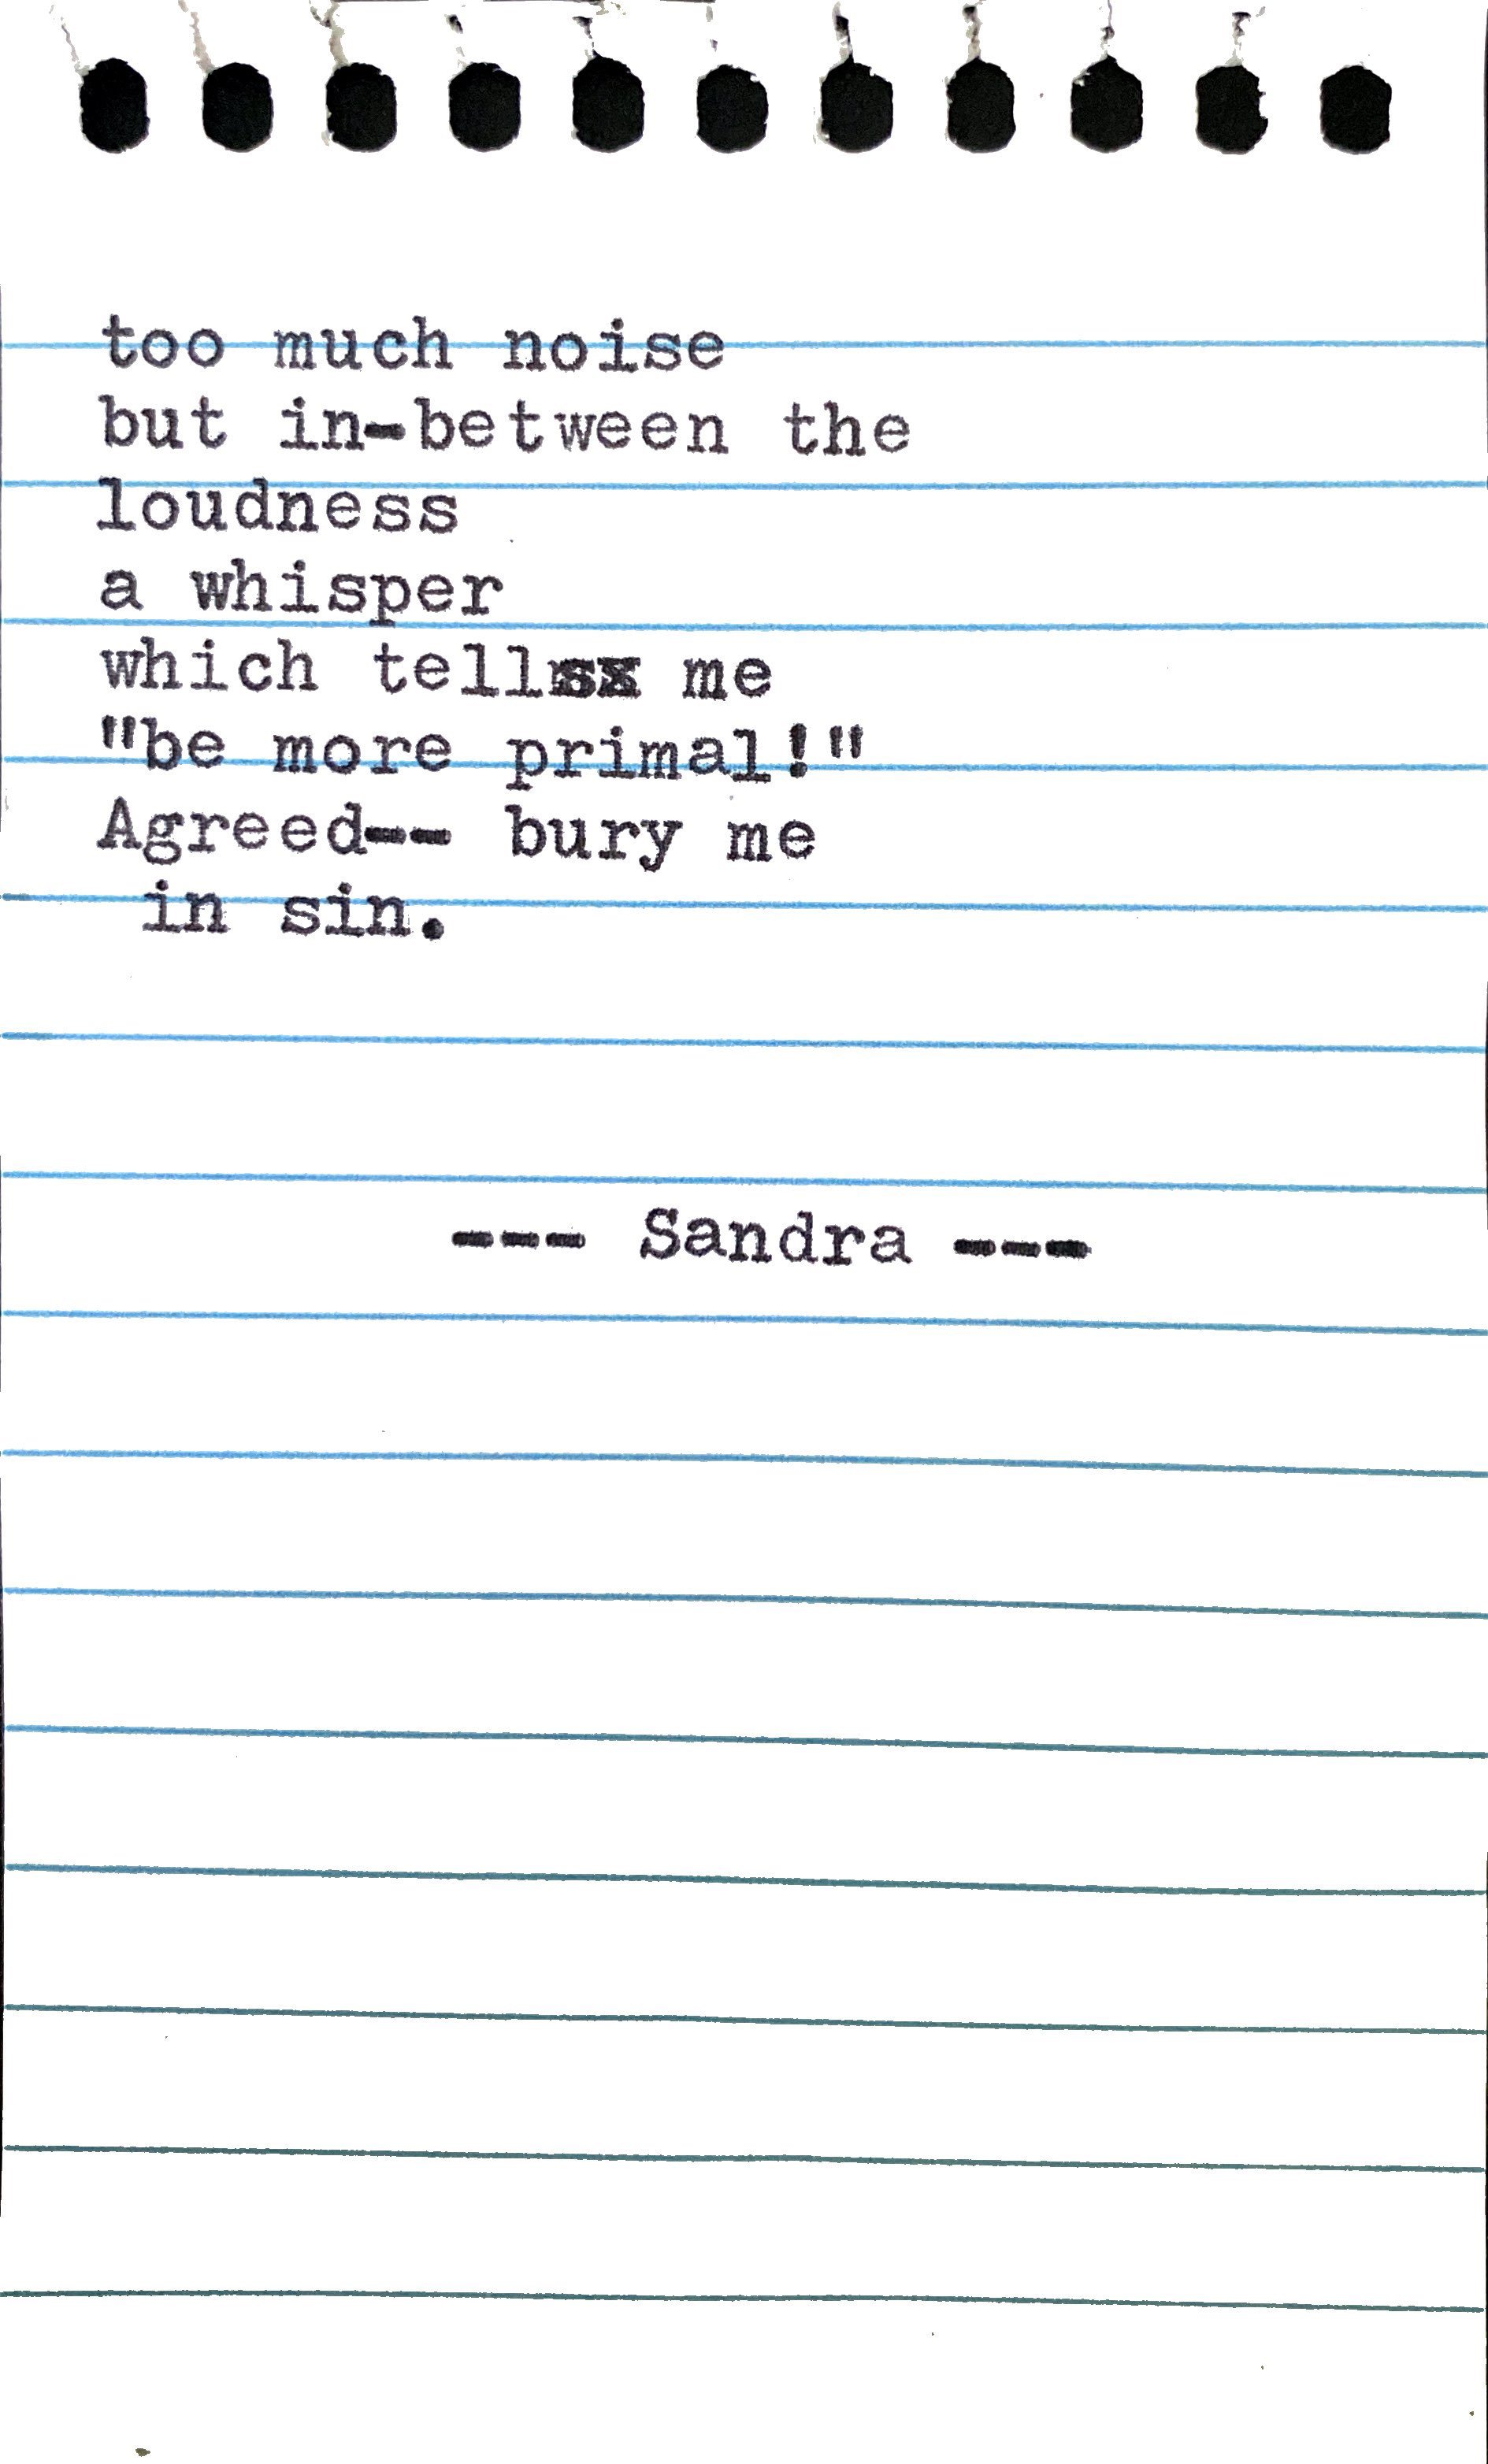 too much noise
but in-between the
loudness
a whisper
which tells me
"be more primal!"
Agreed-- bury me
in sin.
--- Sandra ---